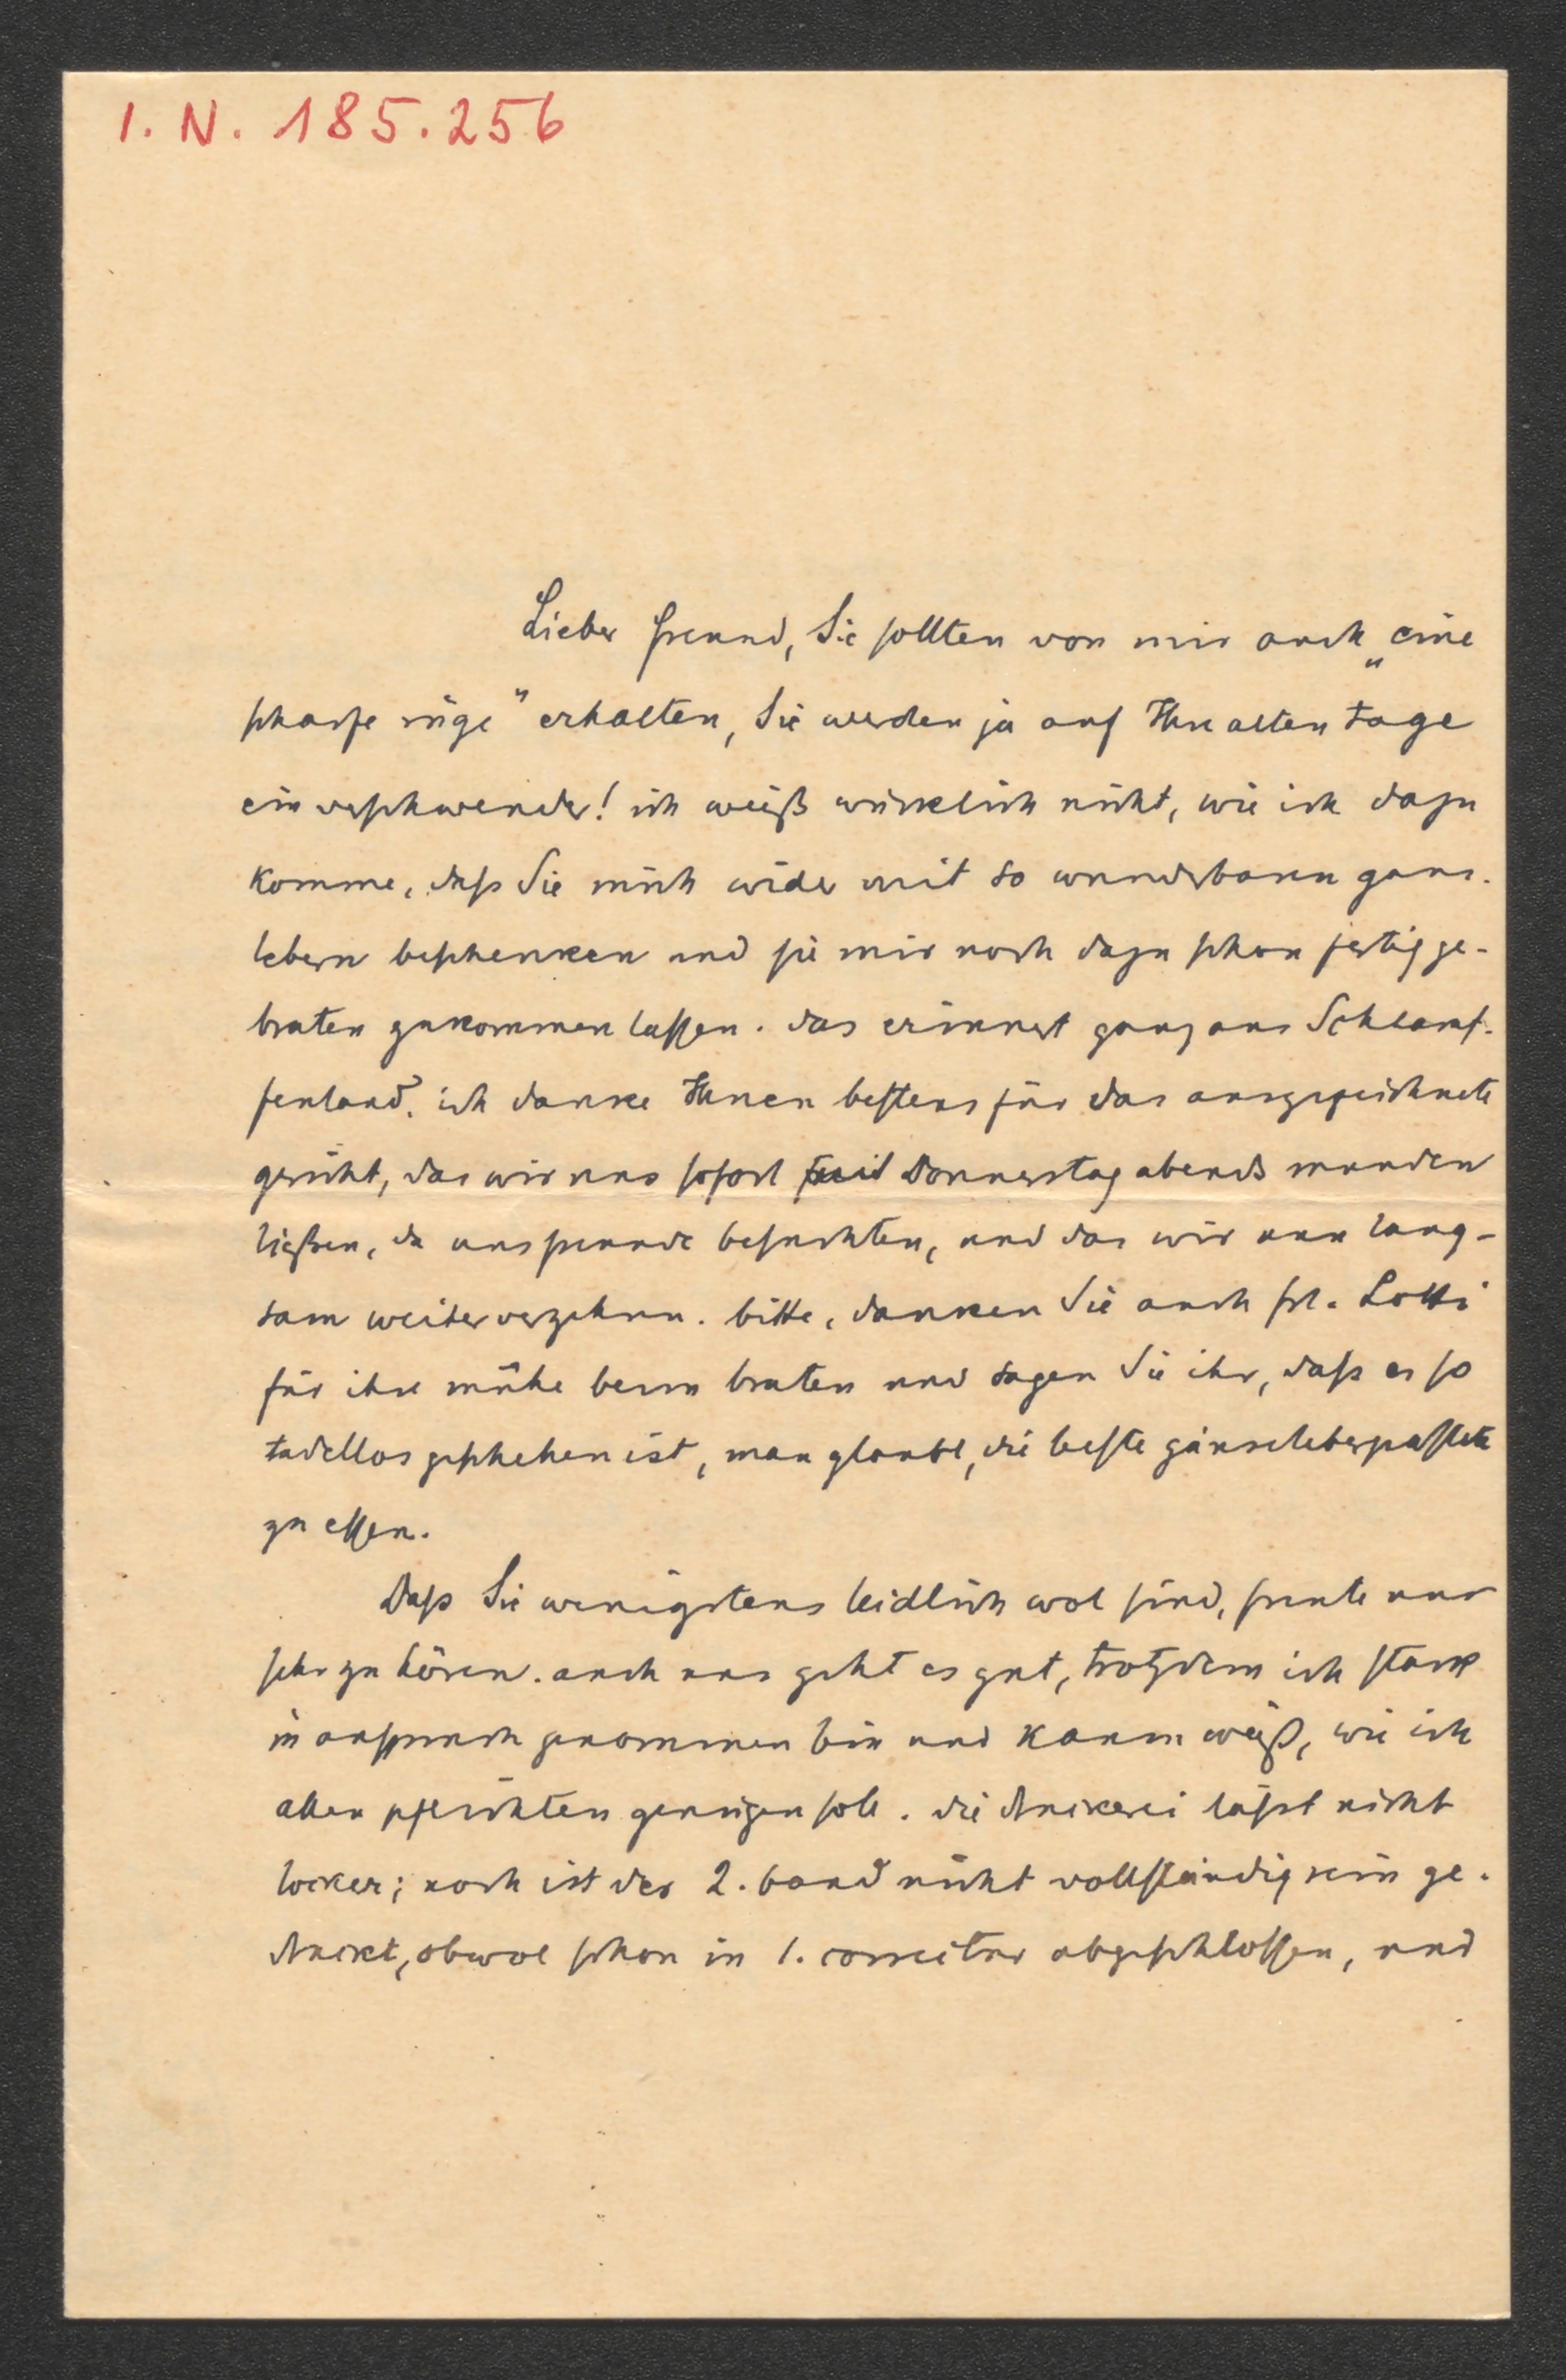 I. N. 185.256
Lieber freund, Sie sollten von mir auch „eine
scharfe rüge" erhalten, Sie werden ja auf Ihre alten tage
ein verschwender! ich weiß wirklich nicht, wie ich dazu
komme, dass Sie mich wider mit so wunderbaren gans-
lebern beschenken und sie mir noch dazu schon fertig ge-
braten zukommen lassen. das erinnert ganz ans Schlaraf-
fenland. ich danke Ihnen bestens für das ausgezeichnete
gericht, das wir uns sofort Donnerstag abends munden
ließen, da uns freunde besuchten, und das wir nun lang-
sam weiterverzehren. bitte, danken Sie auch frl. Lotti
für ihre mühe beim braten und sagen Sie ihr, dass es so
tadellos geschehen ist, man glaubt, die beste gänseleberpastete
zu essen.
Dass Sie wenigstens leidlich wol sind, freute uns
sehr zu hören. auch uns geht es gut, trotzdem ich stark
in anspruch genommen bin und kaum weiß, wie ich
allen pflichten genügen soll. die druckerei lässt nicht
locker; noch ist der 2. band nicht vollständig rein ge-
druckt, obwol schon in 1. correctur abgeschlossen, und